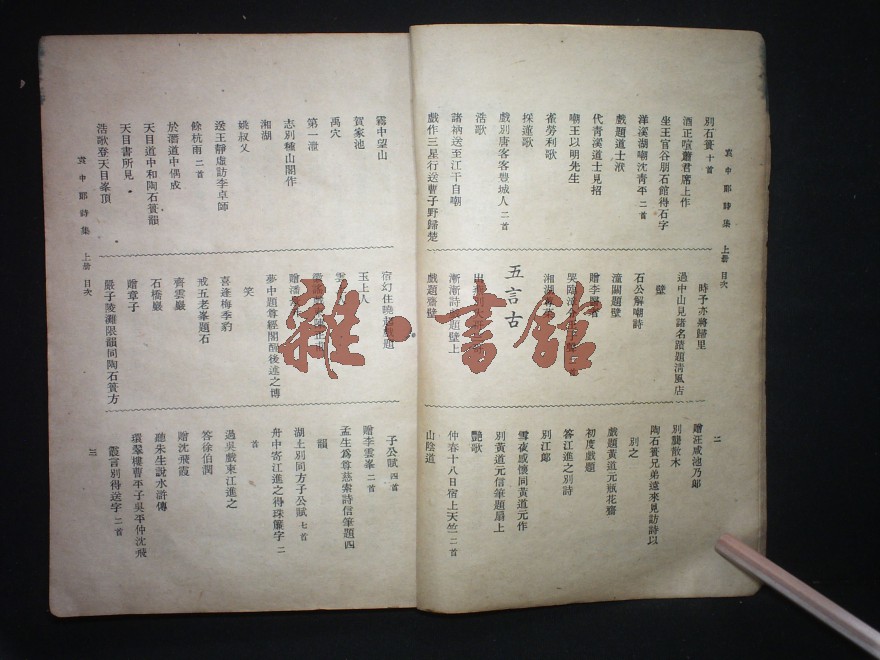 袁中郎詩集 上册 目次
二
別石簣十首
酒正喧蕭君席上作
坐王官谷朋石館得石字
洋溪湖嘲沈青平二首
戲題道士洑
代青溪道士見招
嘲王以明先生
雀勞利歌
採蓮歌
戲別唐客客豐城人二首
浩歌
諸衲送至江干自嘲
戲作三星行送曹子野歸楚
時予亦將歸里
過中山見諸名蹟題清風店
壁
石公解嘲詩
潼關題壁
五言古
漸漸詩戲題壁上
戲題齋壁
贈汪咸池乃郎
別龔散木
陶石簣兄弟遠來見訪詩以
別之
戲題黃道元瓶花齋
初度戲題
答江進之別詩
別江郎
雪夜感懷同黃道元作
別黃道元信筆題扇上
艷歌
仲春十八日宿上天竺二首
山陰道
霧中望山
賀家池
禹穴
第一泄
志別種山閣作
湘湖
姚叔乂
送王靜虛訪李卓師
餘杭雨二首
於潛道中偶成
天目道中和陶石簣韻
天目書所見
浩歌登天目峯頂
玉上人
夢中題尊經閣醒後述之博
笑
喜逢梅季豹
戒五老峯題石
齊雲巖
石橋巖
贈章子
嚴子陵灘限韻同陶石簣方
子公賦四首
贈李雲峯二首
孟生爲尊慈索詩信筆題四
韻
湖上別同方子公賦七首
舟中寄江進之得珠簾字二
首
過吳戲柬江進之
答徐伯潤
贈沈飛霞
聽朱生說水滸傳
環翠樓曹平子吳平仲沈飛
叢言別得送字二首
袁中郎詩集 上册 目次
三
雜·書館